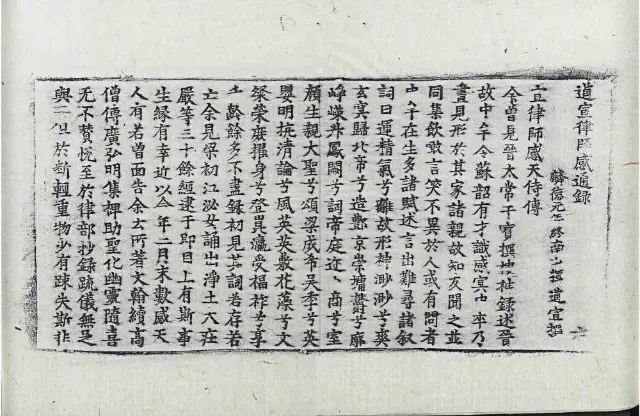 道宣律師感通錄
麟德元年終南山釋道宣撰
宣律師感天侍傳
余曾見晉太常干寶撰搜神錄述晉
故中牟令蘇韶有才識感冥中卒乃
晝見形於其家諸親故知友聞之並
同集飲噉言笑不異於人或有問者
中牟在生多諸賦述言出難尋請叙
詞曰運精氣兮離故形神渺渺兮爽
玄冥歸北帝兮造酆京崇墉鬱兮廓
崢嶸升鳳闕兮詞帝庭迩卜商兮室
顏生親大聖兮頌梁成希吳季兮英
嬰明抗清論兮風英英敷花藻兮文
粲榮庶擢身兮登崑瀛受福祚兮享
千齡餘多不盡錄初見其詞若存若
亡余見梁初江泌女誦出淨土大莊
嚴等三十餘經逮于即日上有斯事
生緣有幸近以今年二月末數感天
人有若曾面告余云所著文翰續高
僧傳廣弘明集裨助聖化幽靈隨喜
无不贊悅至於律部抄錄疏儀無足
與二但於斷輕重物少有疎失斯非